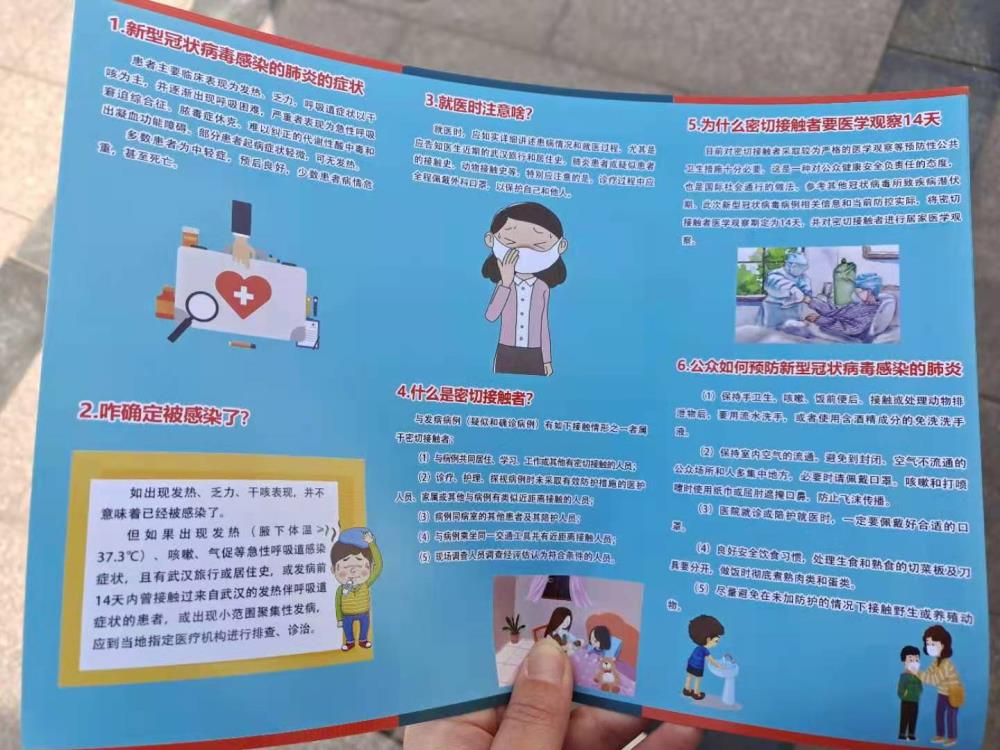 1.新型冠状病毒感染的肺炎的症状
患者主要临床表现为发热、乏力，呼吸道症状以干
咳为主，并逐渐出现呼吸困难，严重者表现为急性呼吸
窘迫综合征、脓毒症休克、难以纠正的代谢性酸中毒和
出凝血功能障碍。部分患者起病症状轻微，可无发热。
多数患者为中轻症，预后良好，少数患者病情危
重，甚至死亡。
2.咋确定被感染了?
如出现发热、乏力、干咳表现，并不
意味着已经被感染了。
但如果出现发热（腋下体温≥
37.3℃）、咳嗽、气促等急性呼吸道感染
症状，且有武汉旅行或居住史，或发病前
14天内曾接触过来自武汉的发热伴呼吸道
症状的患者，或出现小范围聚集性发病，
应到当地指定医疗机构进行排查、诊治。
3.就医时注意啥?
就医时，应如实详细讲述患病情况和就医过程，尤其是
应告知医生近期的武汉旅行和居住史、肺炎患者或疑似患者
的接触史、动物接触史等。特别应注意的是，诊疗过程中应
全程佩戴外科口罩，以保护自己和他人。
4.什么是密切接触者?
与发病病例（疑似和确诊病例）有如下接触情形之一者属
于密切接触者：
（1）与病例共同居住、学习、工作或其他有密切接触的人员；
（2）诊疗、护理、探视病例时未采取有效防护措施的医护
人员、家属或其他与病例有类似近距离接触的人员；
（3）病例同病室的其他患者及其陪护人员；
（4）与病例乘坐同一交通工具共有近距离接触人员；
（5）现场调查人员调查经评估认为符合条件的人员。
5.为什么密切接触者要医学观察14天
目前对密切接触者采取较为严格的医学观察等预防性公共
卫生措施十分必要，这是一种对公众健康安全负责任的态度，
也是国际社会通行的做法。参考其他冠状病毒所致疾病潜伏
期、此次新型冠状病毒病例相关信息和当前防控实际，将密切
接触者医学观察期定为14天，并对密切接触者进行居家医学观
察。
6.公众如何预防新型冠状病毒感染的肺炎
（1）保持手卫生。咳嗽、饭前便后、接触或处理动物排
泄物后，要用流水洗手，或者使用含酒精成分的免洗洗手
液。
（2）保持室内空气的流通。避免到封闭、空气不流通的
公众场所和人多集中地方，必要时请佩戴口罩。咳嗽和打喷
嚏时使用纸巾或屈肘遮掩口鼻，防止飞沫传播。
（3）医院就诊或陪护就医时，一定要佩戴好合适的口
罩。
（4）良好安全饮食习惯，处理生食和熟食的切菜板及刀
具要分开，做饭时彻底煮熟肉类和蛋类。
（5）尽量避免在未加防护的情况下接触野生或养殖动
物。